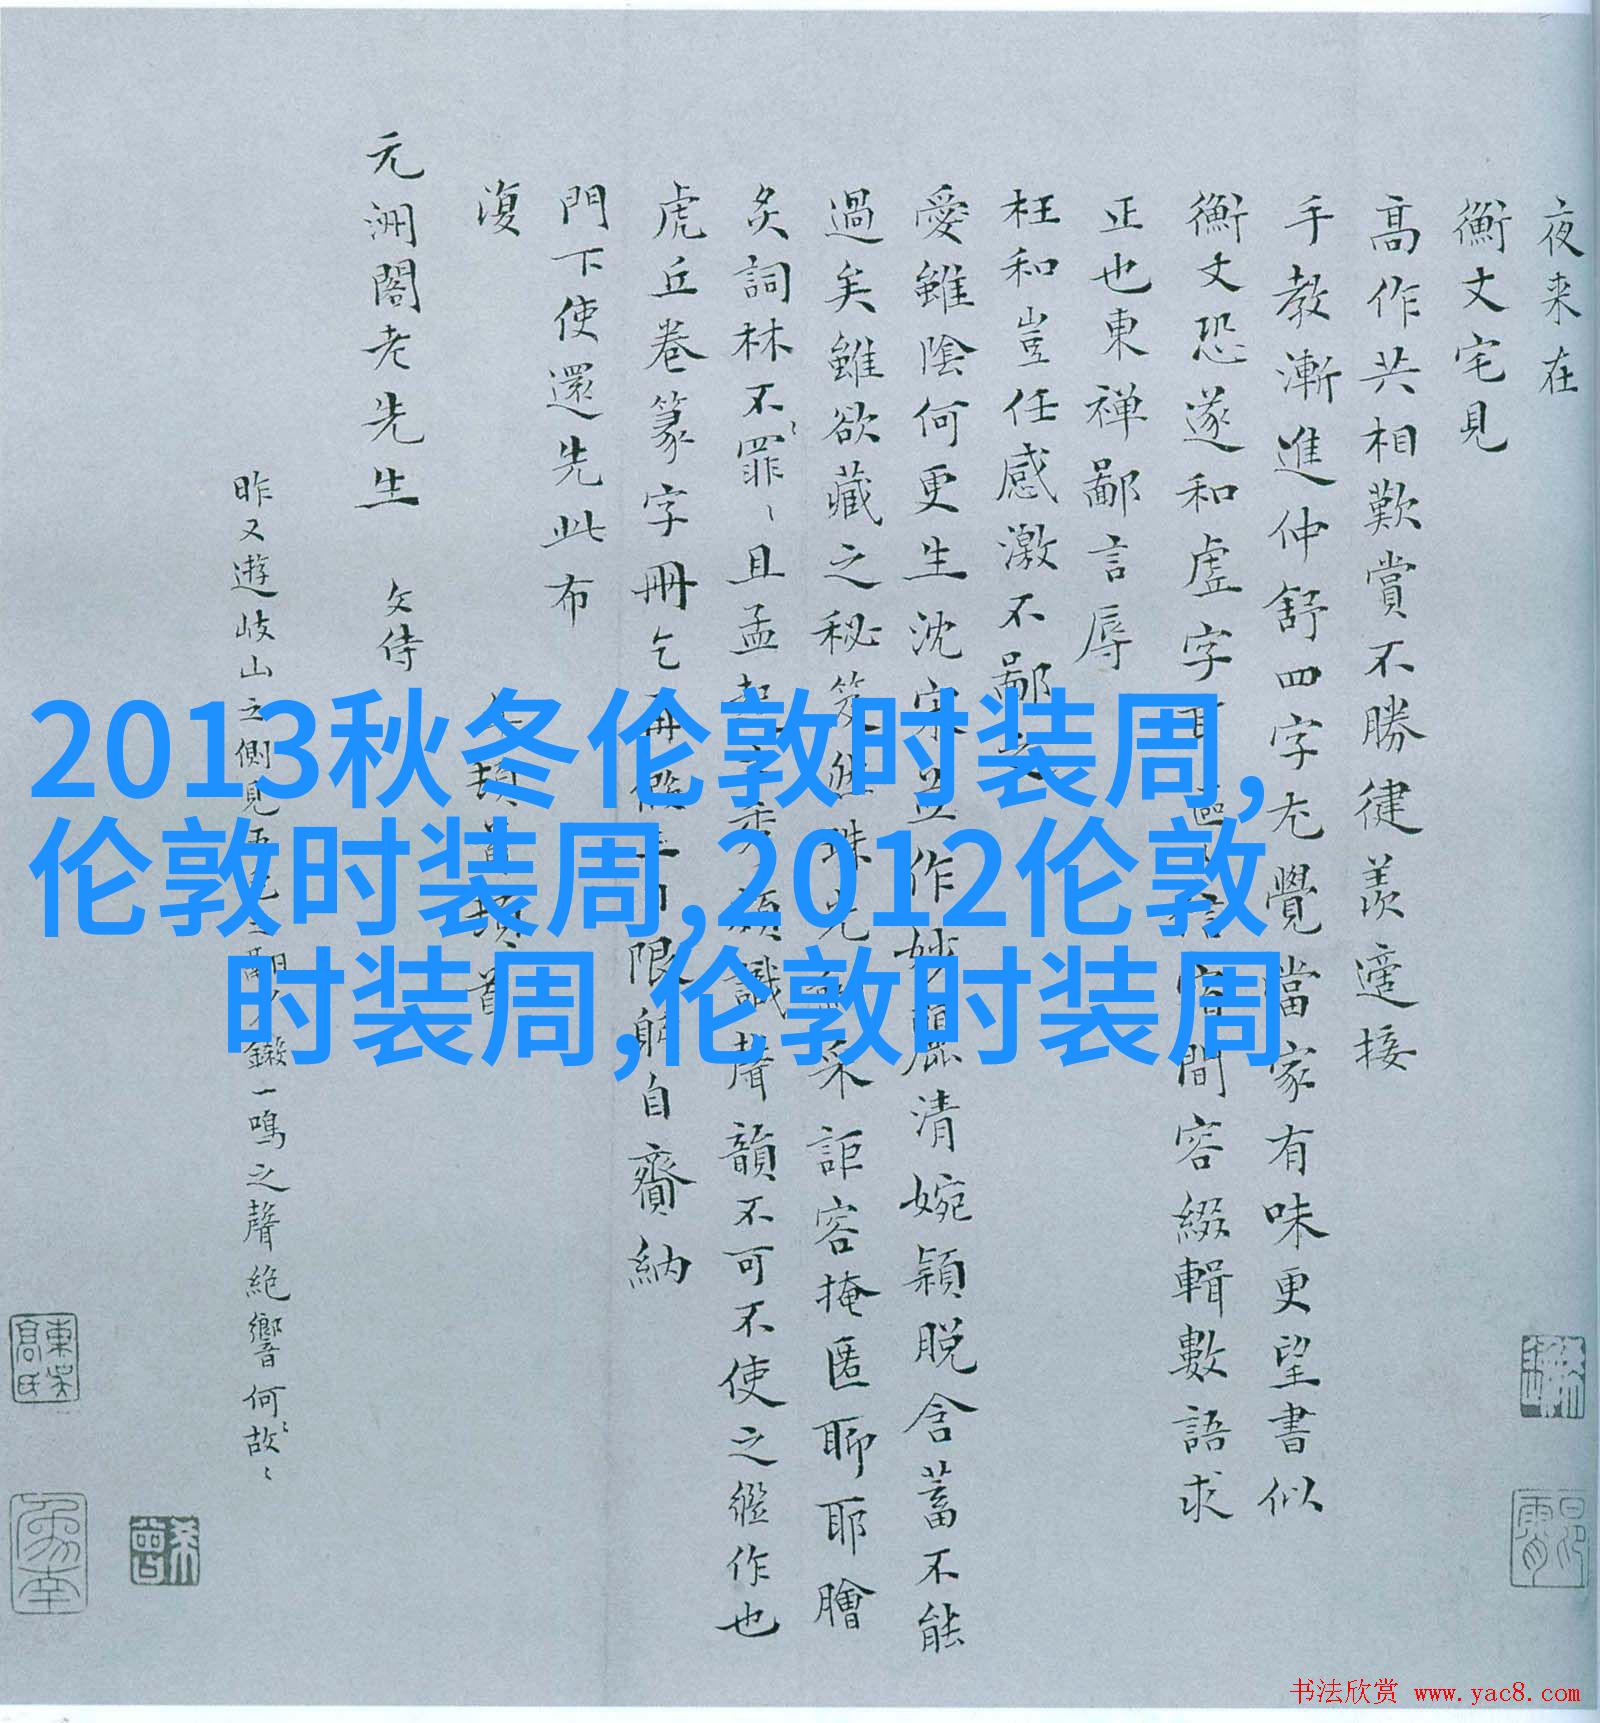 夜来在
衡丈宅見
高作共相歎賞不勝健羨適接
手教漸進仲舒四字尤覺當家有味更望書似
衡丈恐遂和虚字
間容綴輯數語求
正也東禅鄙言辱
枉和豈任感激不鄙
愛雖陰何更生沈宋並作妙麗清婉穎脱含蓄不能
過矣雖欲藏之秘笈然珠光
采詎容掩匿聊耶膾
炙詞林不罪ヽ且孟
識聲韻不可不使之繼作也
虎丘卷篆字冊乞
限躬自齎納
門下使還先此布
復
元洲閣老先生 文侍
昨又遊岐山之側見
一鳴之聲絶響何故ヽ
2013秋冬伦敦时装周,
伦敦时装周,2012伦敦
时装周,伦敦时装周
東吴高氏
书法欣赏 www.yac8.com